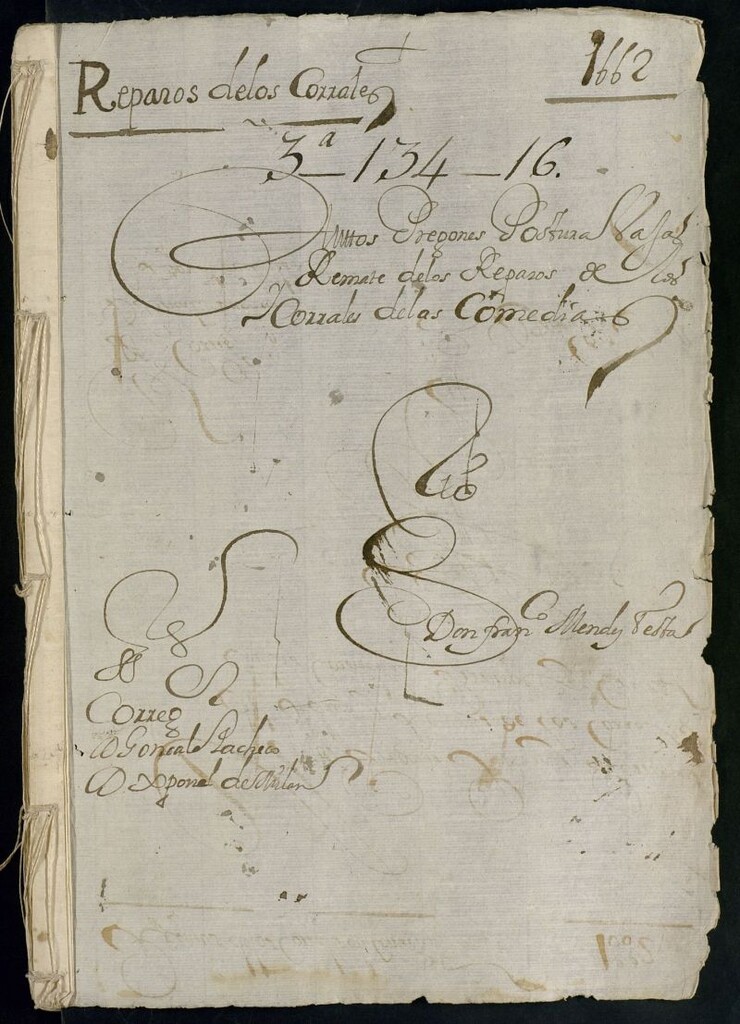 Reparos delos Corrales
1662
3ª–134–16.
Auttos Pregones Postura Vajas
Remate delos Reparos de los
Corrales delas Comedias
Don franco Mendz Testa
SS
Correg
D Gonzalo Pacheco